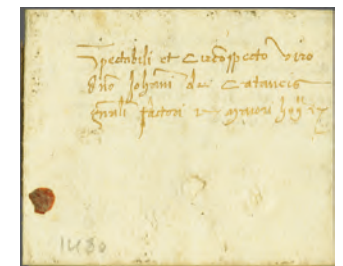 Spectabili et Circonspecto viro
dno Johani de Cataneis
gnali factori
1480